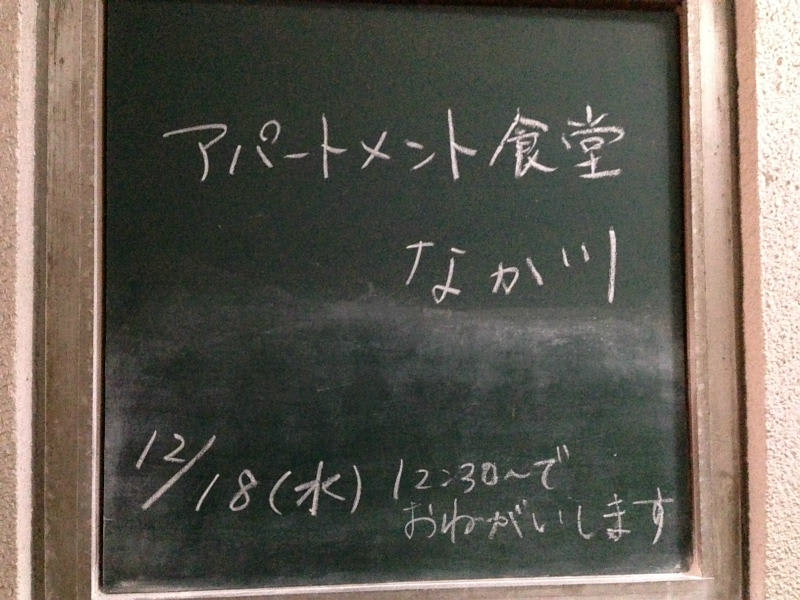 アパートメント食堂
なか川
12/18(水) 12:30〜で
おねがいします